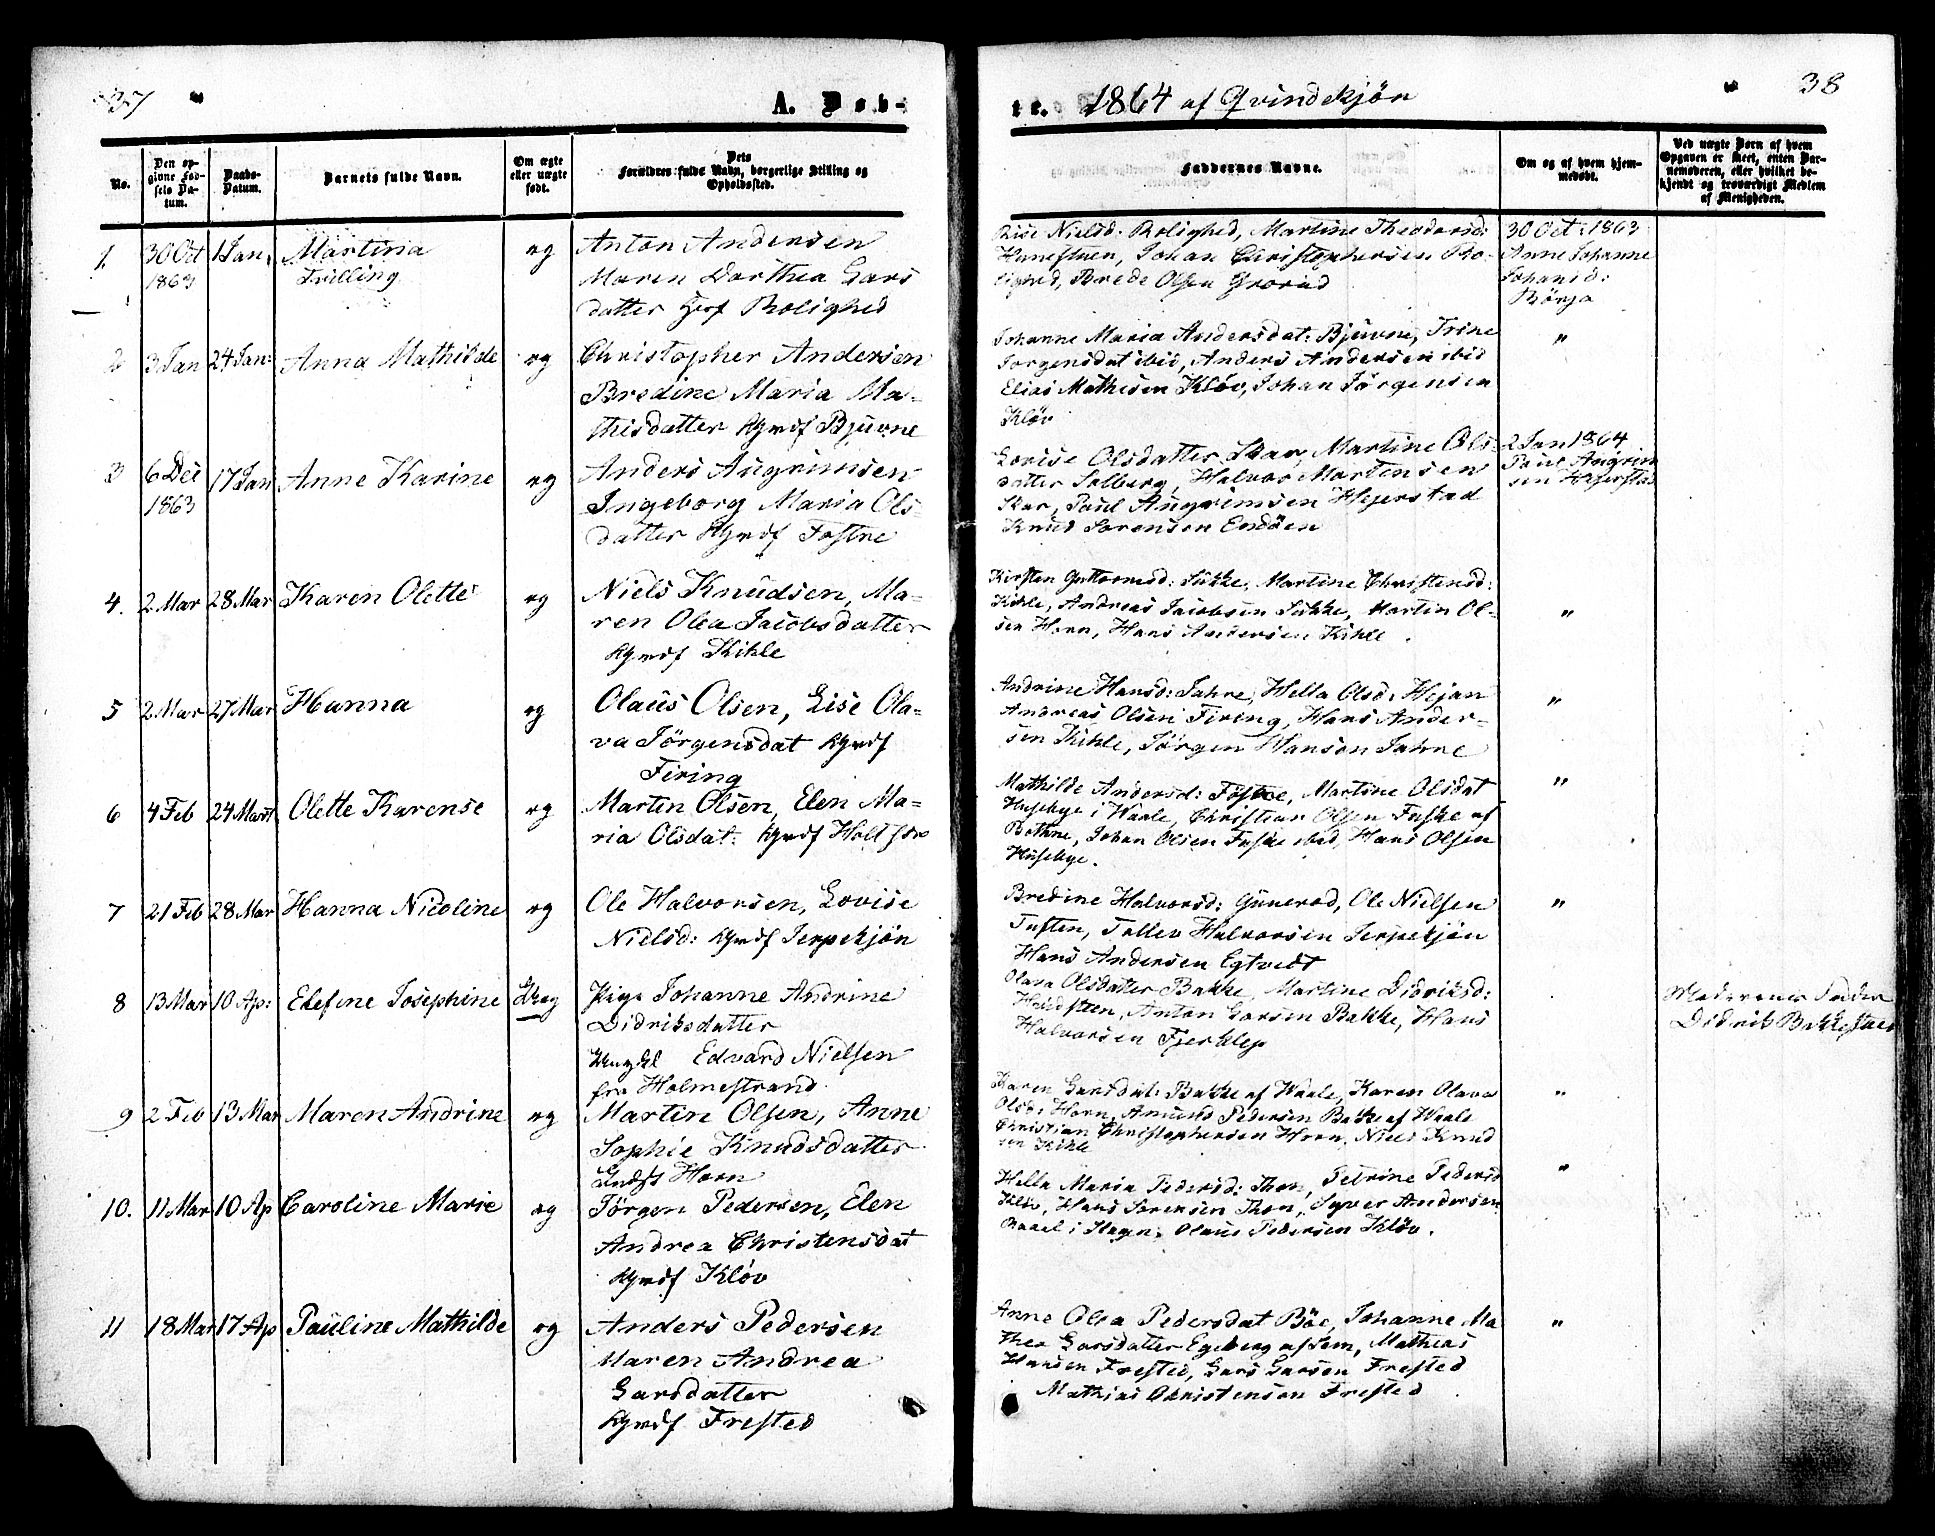 37
A. Døb-
te. 1864 af Qvindekjøn
38
No.
Den op-
givne Fød-
sels Da-
tum.
Daabs-
Datum.
Barnets fulde Navn.
Om ægte
eller uægte
født.
Dets
Forældres fulde Navn, borgerlige Stilling og
Opholdssted.
Faddernes Navne.
Om og af hvem hjem-
medøbt.
Ved uægte Børn af hvem
Opgaven er skeet, enten Bar-
nemoderen, eller hvilket be-
kjendt og troværdigt Medlem
af Menigheden.
1. 30 Oct 1 Jan. Martina æg Anton Andersen
1863 Trilling Maren Dorthea Lars
datter Rolighed
Nielsd: Rolighed, Martine Theodorsd:
Hanestuen, Johan Christophersen Ro-
lighed, Brede Olsen Grorud
30 Oct: 1863
Anne Johanne
Johansd:
Børja
2 3 Jan 24 Jan: Anna Mathilde æg Christopher Andersen
Bredine Maria Ma-
thisdatter Hgmdf Bjuvne
Johanne Maria Andersdat: Bjuvne, Trine
Jørgensdat ibid, Anders Andersen ibid
Elias Mathisen Kløv, Johan Jørgensen
Kløv
"
3 6 Dec 17 Jan Anne Karine æg Anders Angrimsen
1863 Ingeborg Maria Ols-
datter Hgmdf Fostne
Lovise Olsdatter Skar, Martine Ols-
datter Solberg, Halvor Martensen
Skar, Paul Angrimsen Hejerstad
Knud Sorensen Endsøen
2 Jan 1864
Paul Angrim
sen Hejerstad
4. 2 Mar 28 Mar Karen Olette æg Niels Knudsen, Ma-
ren Olea Jacobsdatter
Hgmdf Kihle
Kirsten Guttormsd: Sukke, Martine Christensd:
Kihle, Andreas Jacobsen Sukke, Martin Ol-
sen Horn, Hans Andersen Kihle.
"
5 2 Mar 27 Mar Hanna æg Olaus Olsen, Lise Ola-
va Jørgensdat Hgmdf
Firing
Andrine Hansd: Jahre, Hella Olsd: Hejan
Andreas Olsen Firing, Hans Ander-
sen Kihle, Jørgen Hanson Jahre
"
6 4 Feb 24 Mart Olette Karense æg Martin Olsen, Elen Ma-
ria Olsdat: Hgmdf Holt
Mathilde Andersd: Fostne, Martine Olsdat
Husebye i Waale, Christian Olsen Fuske af
Bothne, Johan Olsen Fuske ibid, Hans Olsen
Husebye.
"
7 21 Feb 28 Mar Hanna Nicoline æg Ole Halvorsen, Lovise
Nielsd: Hgmdf Jerpekjøn
Bredine Halvorsd: Gunerød, Ole Nielsen
Tuften, Tollev Halvorsen Jerpekjøn
Hans Andersen Egtvedt
"
8 13 Mar 10 Ap: Elefine Josephine Uæg Pige Johanne Andrine
Didriksdatter
Ungkl Edvard Nielsen
fra Holmestrand.
Olava Olsdatter Bakke, Martine Didriksd:
Anton Larsen Bakke, Hans
Halvorsen
Moderens Fader
Didrik
9 2 Feb 13 Mar Maren Andrine æg Martin Olsen, Anne
Sophie Knudsdatter
Horn
Karen Larsdat: Bakke af Waale, Karen Olava
Olsd: Horn, Amund Pedersen Bakke af Waale
Christian Christophersen Horn, Niels Knud
sen Kihle
"
10. 11 Mar 10 Ap Caroline Marie æg Jørgen Pedersen, Elen
Andrea Christensdat
Hgmdf Kløv
Hella Maria Pedersd: Thon, Petrine Pedersd
Kløv, Hans Sørensen Thon, Syver Andersen
i Slagn, Olaus Pedersen Kløv.
"
11 18 Mar 17 Ap Pauline Mathilde æg Anders Pedersen
Maren Andrea
Larsdatter
Hgmdf Frested
Anne Olea Pedersdat Bøe, Johanne Ma
thea Larsdatter Egeberg af Sem, Mathias
Hansen Frested, Lars Larsen Frested
Mathias Christenson Frested
"